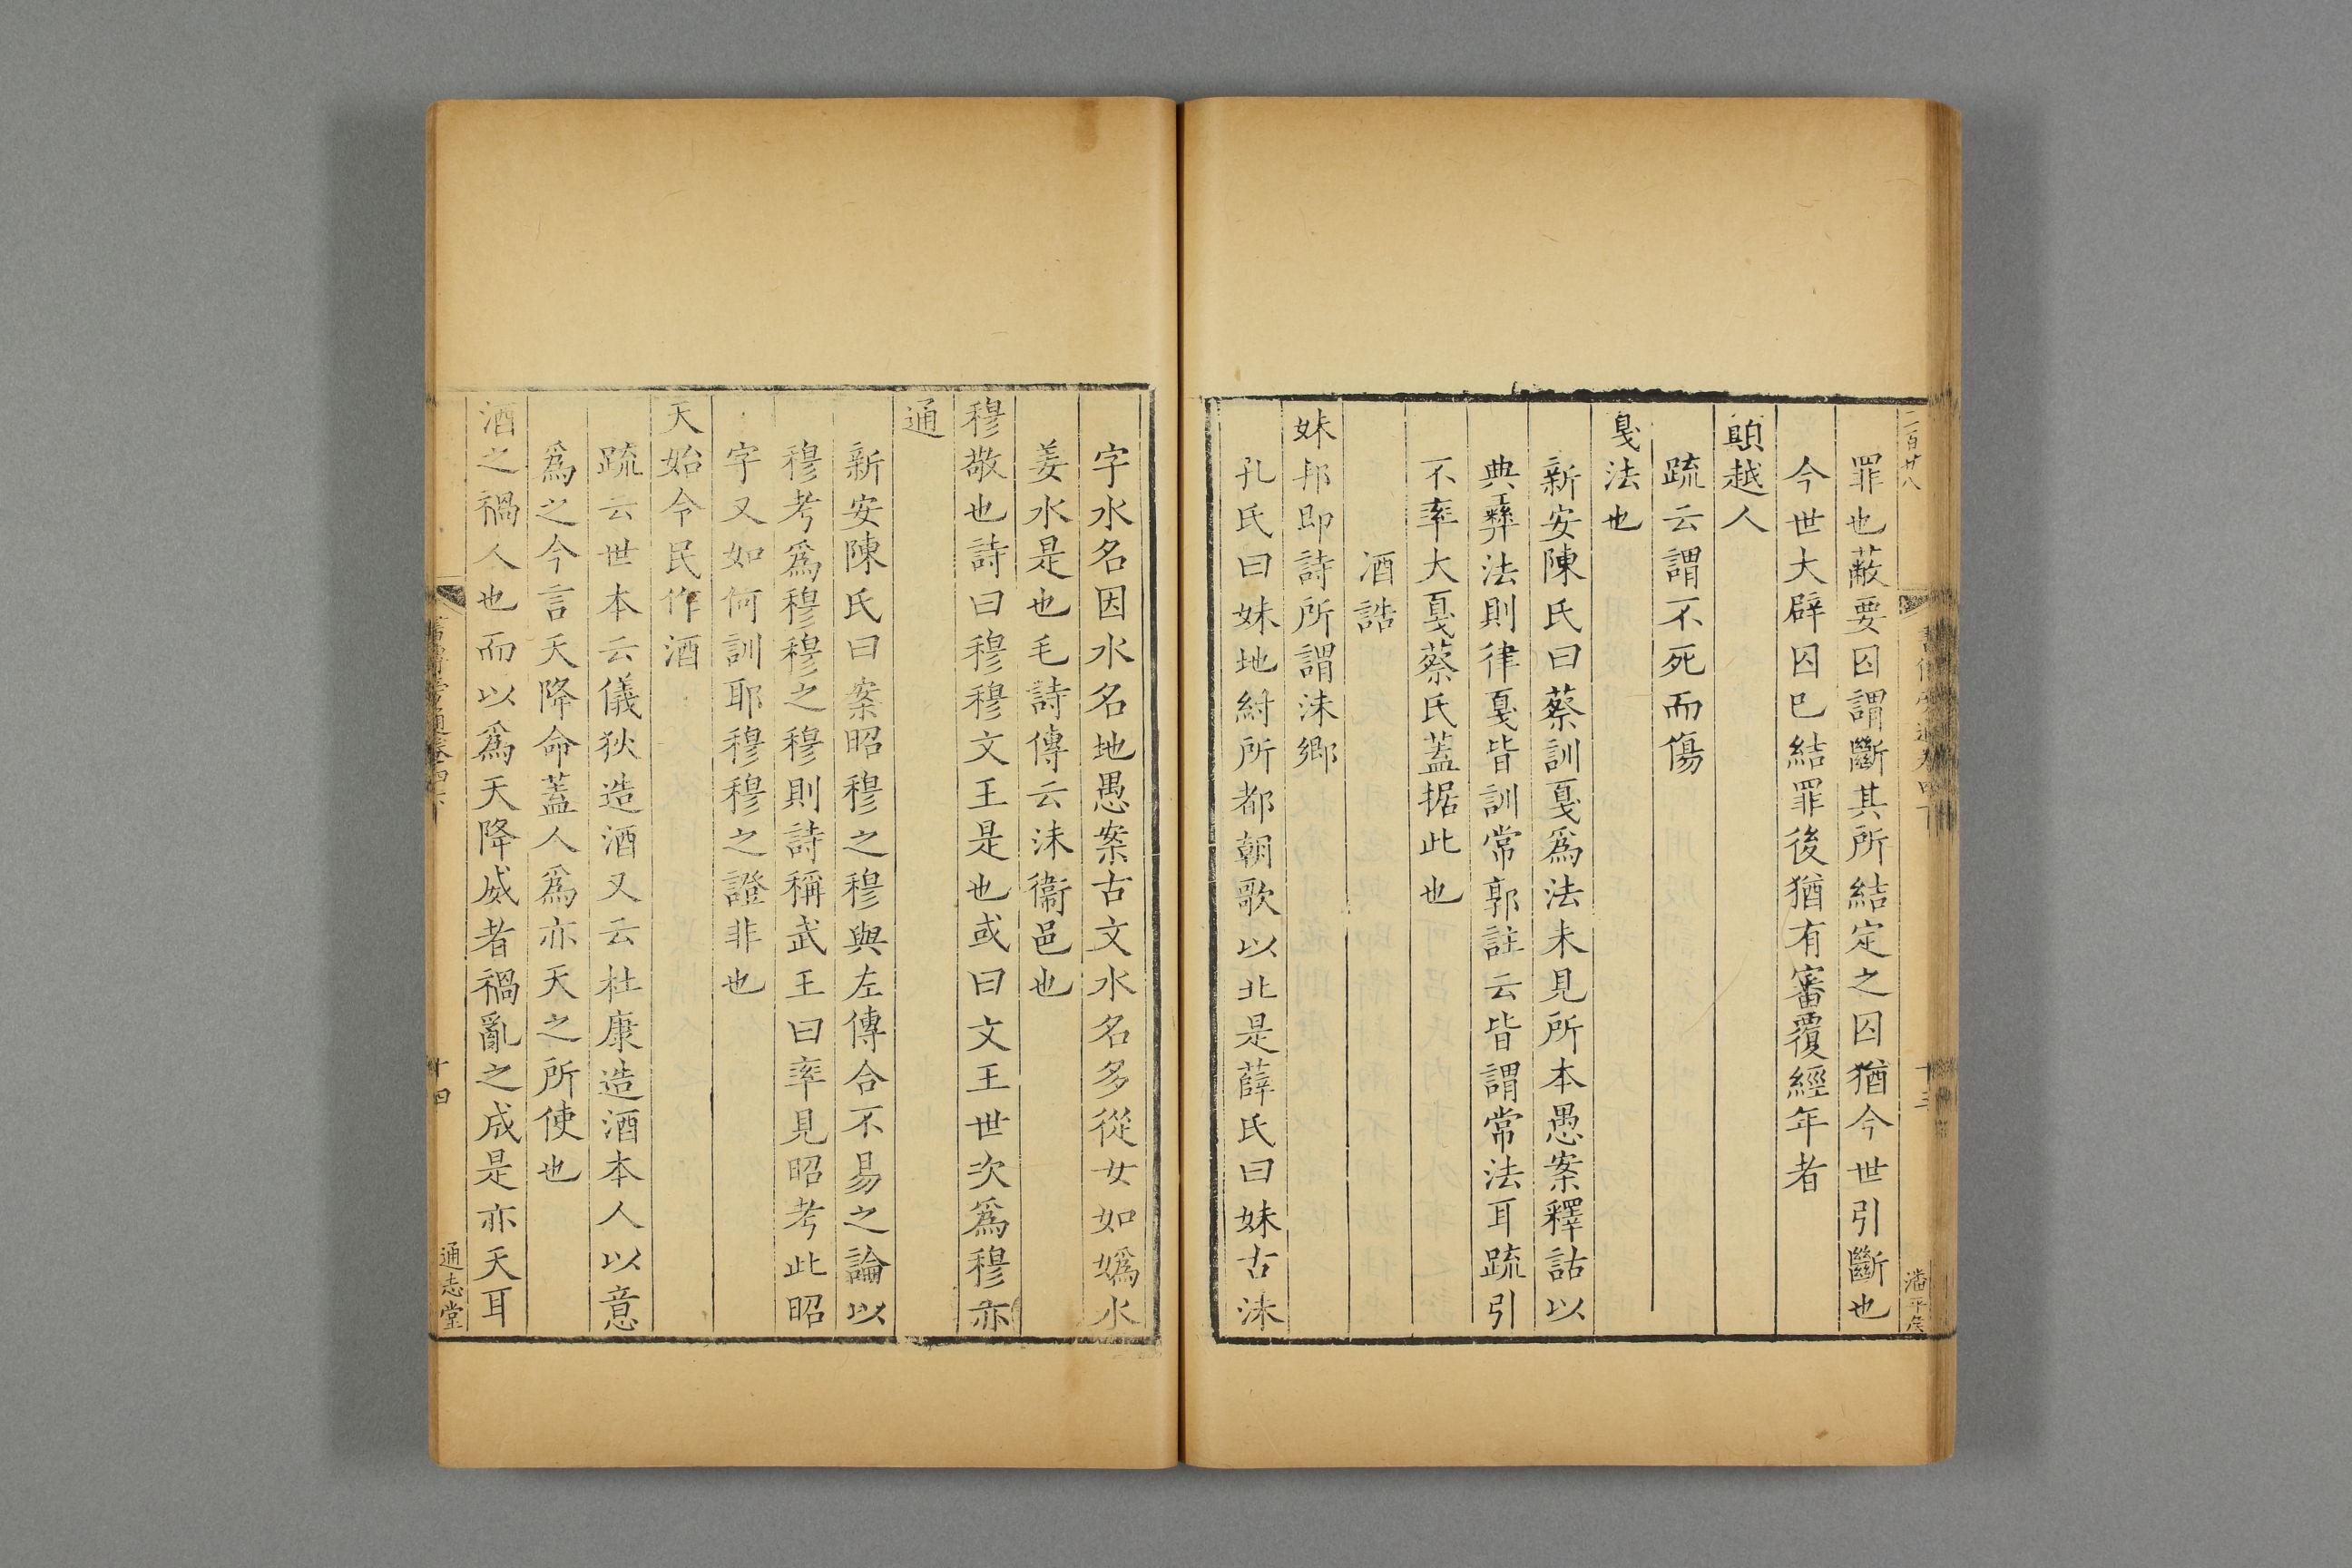 二百廿八
潘平侯
罪也蔽要囚謂斷其所結定之囚猶今世引斷也
今世大辟囚已結罪後猶有審覆經年者
顛越人
疏云謂不死而傷
戛法也
新安陳氏曰蔡訓戛爲法未見所本愚案釋詁以
典彝法則律戛皆訓常郭註云皆謂常法耳疏引
不率大戛蔡氏蓋据此也
酒誥
妹邦即詩所謂沬鄉
孔氏曰妹地紂所都朝歌以北是薛氏曰妹古沬
字水名因水名地愚案古文水名多從女如嬀水
姜水是也毛詩傳云沬衞邑也
穆敬也詩曰穆穆文王是也或曰文王世次爲穆亦
通
新安陳氏曰案昭穆之穆與左傳合不易之論以
穆考爲穆穆之穆則詩稱武王曰率見昭考此昭
字又如何訓耶穆穆之證非也
天始令民作酒
疏云世本云儀狄造酒又云杜康造酒本人以意
爲之今言天降命蓋人爲亦天之所使也
酒之禍人也而以爲天降威者禍亂之成是亦天耳
十四
通志堂